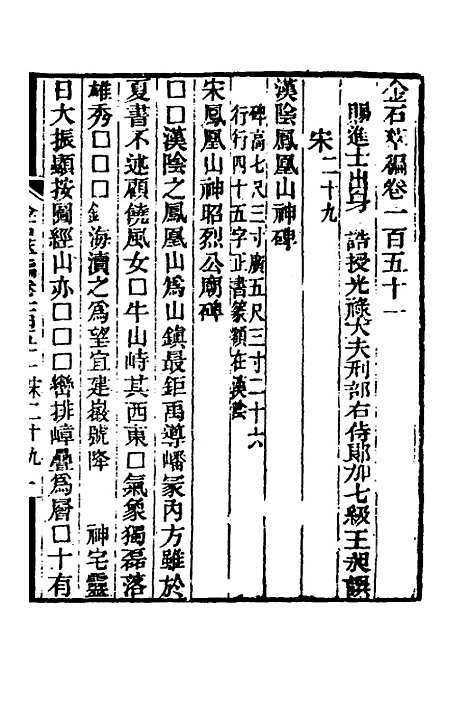 金石萃編卷一百五十一
賜進士出身 誥授光祿大夫刑部右侍郎加七級王昶譔
宋二十九
漢陰鳳凰山神碑
碑高七尺三寸廣五尺三寸二十六
行行四十五字正書篆額在漢陰
宋鳳凰山神昭烈公廟碑
□□漢陰之鳳凰山為山鎮最鉅禹導嶓冢內方雖於
夏書不述顧饒風女□牛山峙其西東□氣象獨磊落
雄秀□□□ 海瀆之為望宜建嶽號降 神宅靈
日大振顯按圖經山亦□□□巒排嶂疊為層□十有
金石萃編卷一百五十一 宋二十九 一